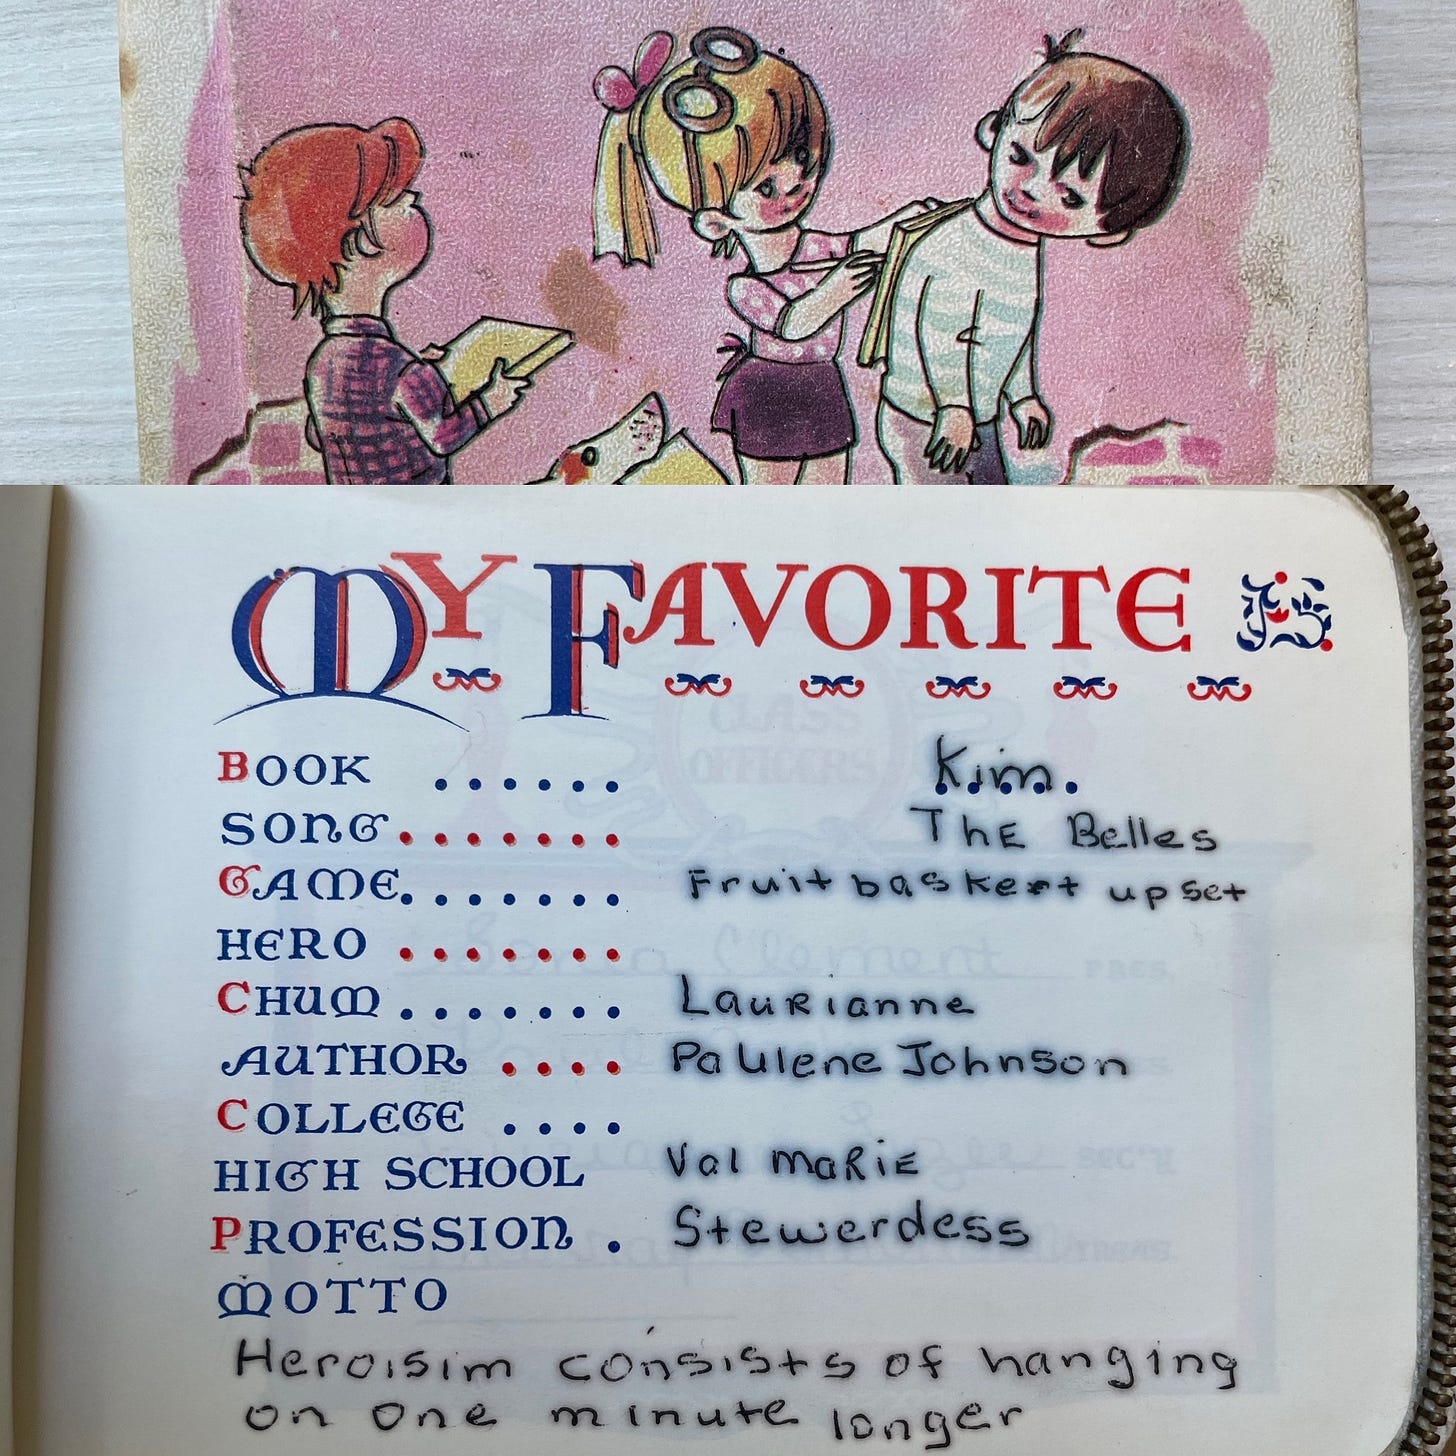 MY FAVORITES
BOOK ...... Kim.
SONG ....... The Belles
GAME ....... Fruit baskert upset
HERO .......
CHUM ....... Laurianne
AUTHOR .... Paulene Johnson
COLLEGE ....
HIGH SCHOOL Val maRiE
PROFESSION . Stewerdess
MOTTO
Heroisim consists of hanging
on one minute longer
CLASS
OFFICERS
Clement PRES.
SEC'Y
TREAS.